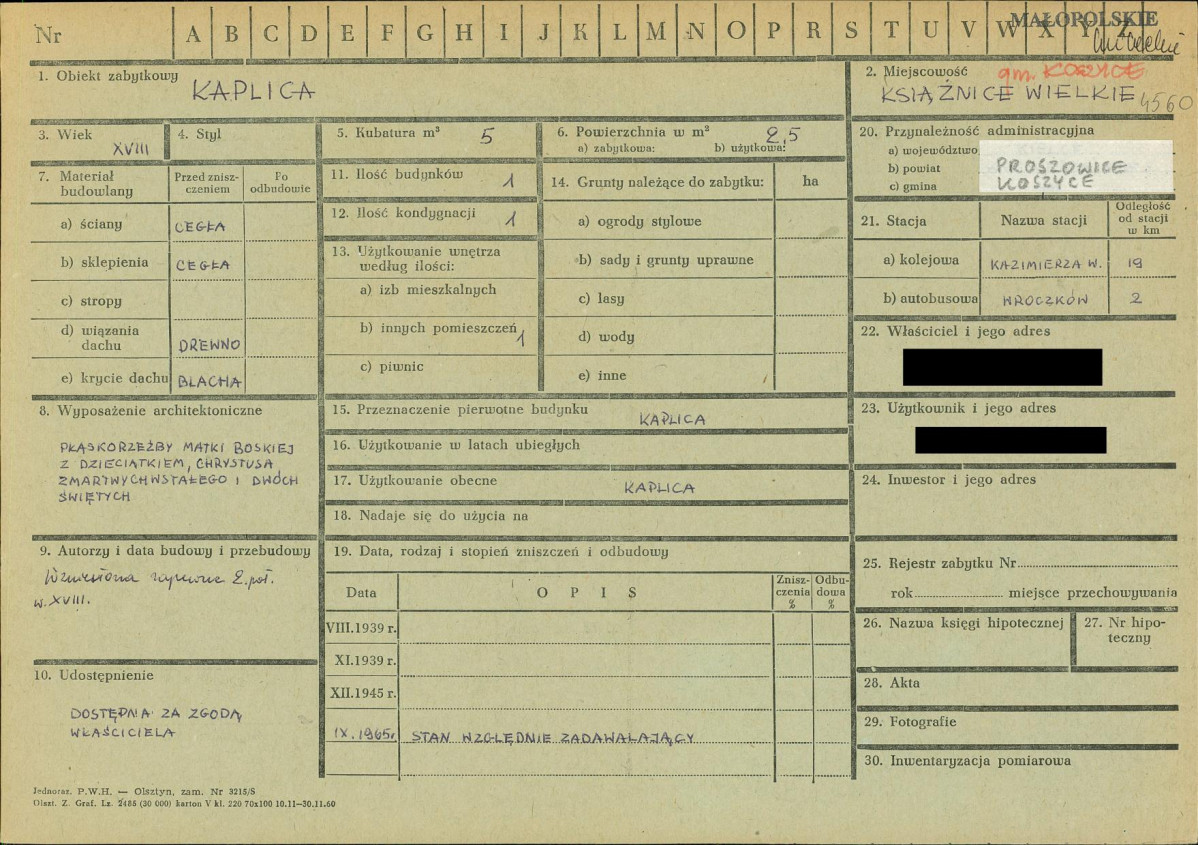 Nr A B C D E F G H I J K L M N O P R S T U V W X Y Z
MAŁOPOLSKIE
1. Obiekt zabytkowy
KAPLICA
2. Miejscowość
gm. KOSZYCE
KSIĄŻNICE WIELKIE 4560
3. Wiek
XVIII
4. Styl
5. Kubatura m³
5
6. Powierzchnia w m²
2,5
a) zabytkowa: b) użytkowa:
7. Materiał
budowlany
Przed znisz-
czeniem
Po
odbudowie
a) ściany CEGŁA
b) sklepienia CEGŁA
c) stropy
d) wiązania
dachu DREWNO
e) krycie dachu BLACHA
8. Wyposażenie architektoniczne
PŁASKORZEŹBY MATKI BOSKIEJ
Z DZIECIĄTKIEM, CHRYSTUSA
ZMARTWYCHWSTAŁEGO I DWÓCH
ŚWIĘTYCH
9. Autorzy i data budowy i przebudowy
Wzniesiona zapewne 2. poł.
w. XVIII.
10. Udostępnienie
DOSTĘPNA ZA ZGODĄ
WŁAŚCICIELA
11. Ilość budynków 1
12. Ilość kondygnacji 1
13. Użytkowanie wnętrza
według ilości:
a) izb mieszkalnych
b) innych pomieszczeń 1
c) piwnic
14. Grunty należące do zabytku: ha
a) ogrody stylowe
b) sady i grunty uprawne
c) lasy
d) wody
e) inne
15. Przeznaczenie pierwotne budynku KAPLICA
16. Użytkowanie w latach ubiegłych
17. Użytkowanie obecne KAPLICA
18. Nadaje się do użycia na
19. Data, rodzaj i stopień zniszczeń i odbudowy
Data
O P I S
Znisz-
czenia
%
Odbu-
dowa
%
VIII.1939 r.
XI.1939 r.
XII.1945 r.
IX.1965r. STAN WZGLĘDNIE ZADAWALAJĄCY
20. Przynależność administracyjna
a) województwo
b) powiat PROSZOWICE
c) gmina KOSZYCE
21. Stacja
Nazwa stacji
Odległość
od stacji
w km
a) kolejowa KAZIMIERZA W. 19
b) autobusowa WROCZKÓW 2
22. Właściciel i jego adres
23. Użytkownik i jego adres
24. Inwestor i jego adres
25. Rejestr zabytku Nr
rok miejsce przechowywania
26. Nazwa księgi hipotecznej
27. Nr hipo-
teczny
28. Akta
29. Fotografie
30. Inwentaryzacja pomiarowa
Jednoraz. P.W.H. — Olsztyn, zam. Nr 3215/S
Olszt. Z. Graf. Lz. 2485 (30 000) karton V kl. 220 70x100 10.11—30.11.60